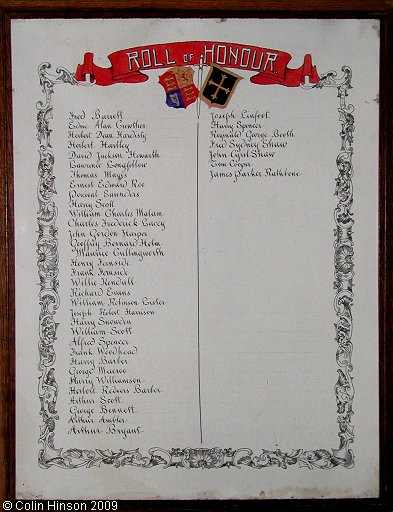 ROLL OF HONOUR
Fred Barrett
Edwin Alan Crowther
Herbert Dean Hardisty
Herbert Hartley
David Jackson Howarth
Lawrence Longfellow
Thomas Mayes
Ernest Edward Roo
Percival Saunders
Harry Scott
William Charles Malam
Charles Frederick Cacey
John Gordon Harper
Geoffrey Bernard Helm
Maurice Cullingworth
Henry Fernside
Frank Fernside
Willie Kendall
Richard Evans
William Robinson Lister
Joseph Robert Harrison
Harry Snowden
William Scott
Alfred Spencer
Frank Woodhead
Harry Barber
George
Harry Williamson
Herbert Redvers Barber
Arthur Scott
George Bennett
Arthur Ambler
Arthur Bryant
Joseph Linfoot
Harry Spencer
Reginald George Booth
Fred Sydney Shaw
John Cyril Shaw
Cooper
James Parker Rathbone
© Colin Hinson 2009